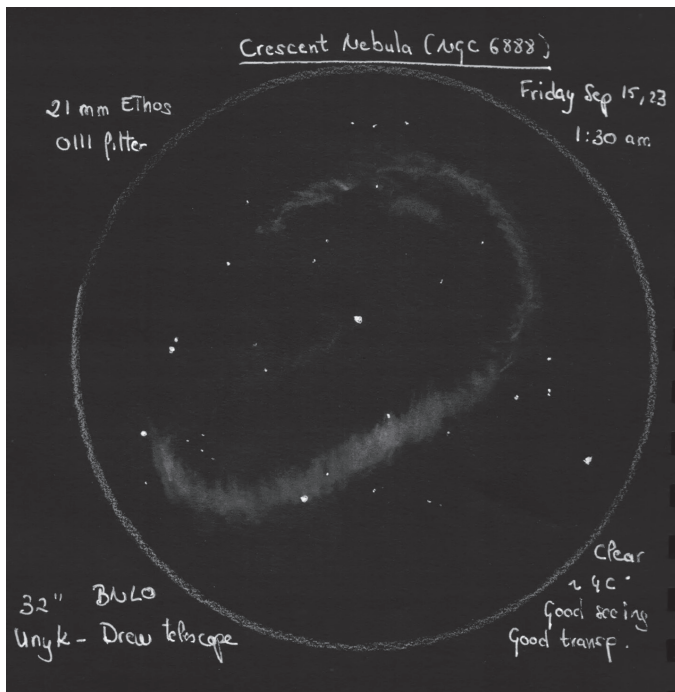 Crescent Nebula (NGC 6888)
21 mm Ethos
OIII filter
Friday Sep 15, 23
1:30 am
32" BNLO
Unyk - Drew telescope
Clear
~ 4C°
Good seeing
Good transp.